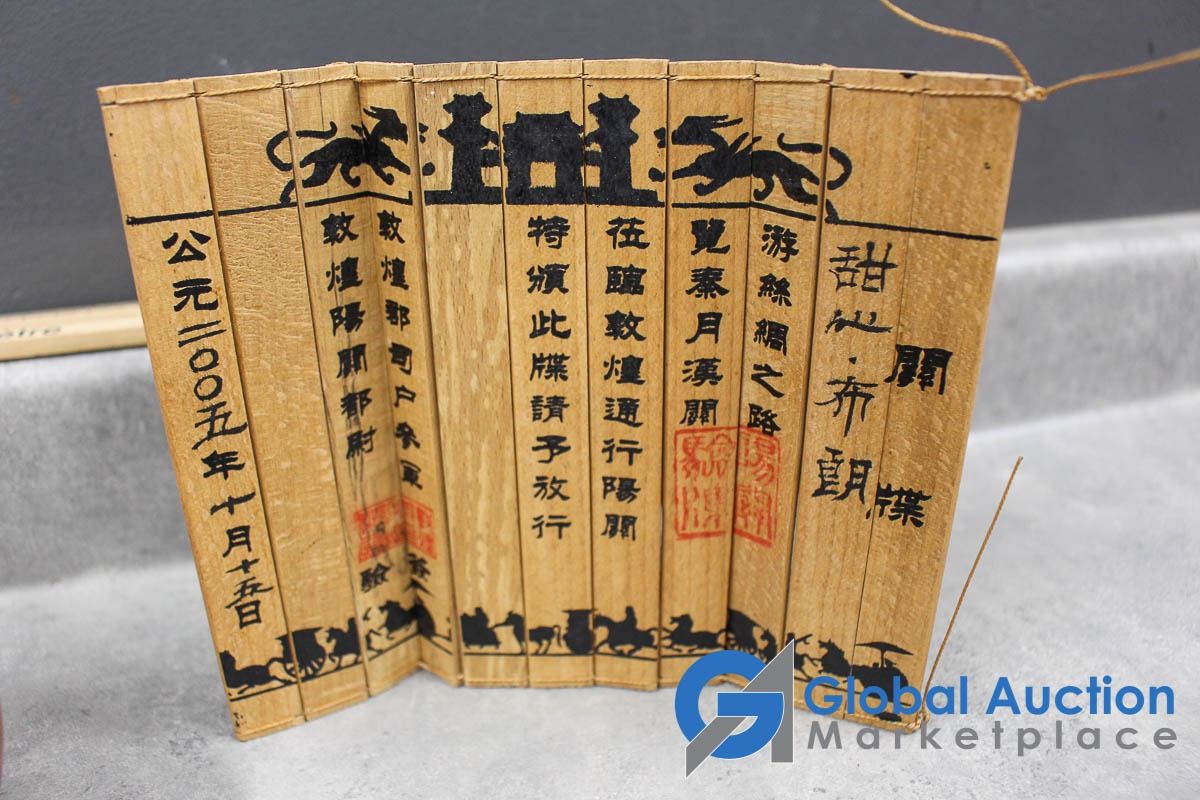 關牒
甜心·布朗
游絲綢之路
覽秦月漢關
莅臨敦煌通行陽關
特頒此牒請予放行
敦煌郡司户參軍
敦煌陽關都尉
驗
公元二〇〇五年十月十五日
陽關
Global Auction
Marketplace